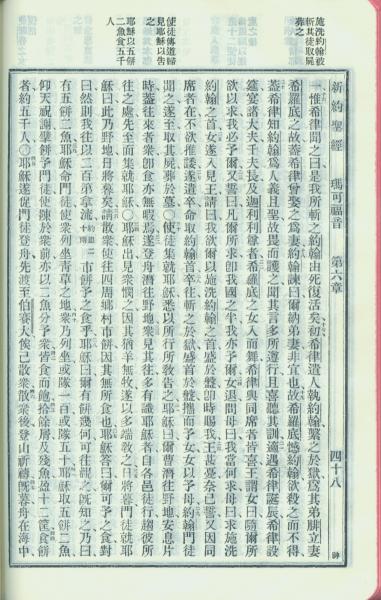 施洗約翰被
斬其徒取屍
葬之
使徒傳道歸
見耶穌以告
之
耶穌以五餅
二魚食五千
人
新約聖經 瑪可福音 第六章 四十八 神
惟希律聞之曰是我所斬之約翰由死復活矣初希律遣人執約翰繫之於獄為其弟腓立妻
希羅底之故蓋希律曾娶之為妻約翰諫曰爾納弟妻非宜也故希羅底憾約翰欲殺之而不得
蓋希律知約翰為人義且聖故畏而護之聞其言多所遵行且喜聽其訓適遇希律誕辰希律設
筵宴諸大夫千夫長及迦利利尊者希羅底之女入而舞希律與同席者皆喜王謂女曰隨爾所
欲以求我必予爾又誓曰凡爾所求即我國之半我亦予爾女退問母曰我當何求母曰求施洗
約翰之首女遂入見王請曰我欲爾以施洗約翰之首盛於盤即時賜我王甚憂柰已誓又因同
席者在不欲推諉遂遣卒命取約翰首卒往斬之於獄盛首於盤攜而予女女以予母約翰門徒
聞之遂至取其屍葬於墓○使徒集就耶穌悉以所行所教告之耶穌曰爾曹潛往野地安息片
時蓋往來者衆即食亦無暇焉遂登舟潛往野地衆見其往多有識耶穌者自各邑徒行趨彼所
往之處先至而集就耶穌○耶穌出見衆憫之因其猶羊無牧遂以多端教之日將暮門徒就耶
穌曰此乃野地日將暮矣請散衆使往四周鄉村市餅因其無所食也耶穌答曰爾可予之食對
曰然則我往以二百第拿流市餅予之食乎耶穌曰爾有餅幾何可往視之既知之乃曰
有五餅二魚耶穌命門徒使衆列坐青草之地衆乃列坐或隊一百或隊五十耶穌取五餅二魚
仰天祝謝擘餅予門徒使陳於衆前亦以二魚分予衆皆食而飽拾餘屑及殘魚盈十二筐食餅
者約五千人○耶穌遂促門徒登舟先渡至伯賽大俟己散衆散衆後登山祈禱既暮舟在海中